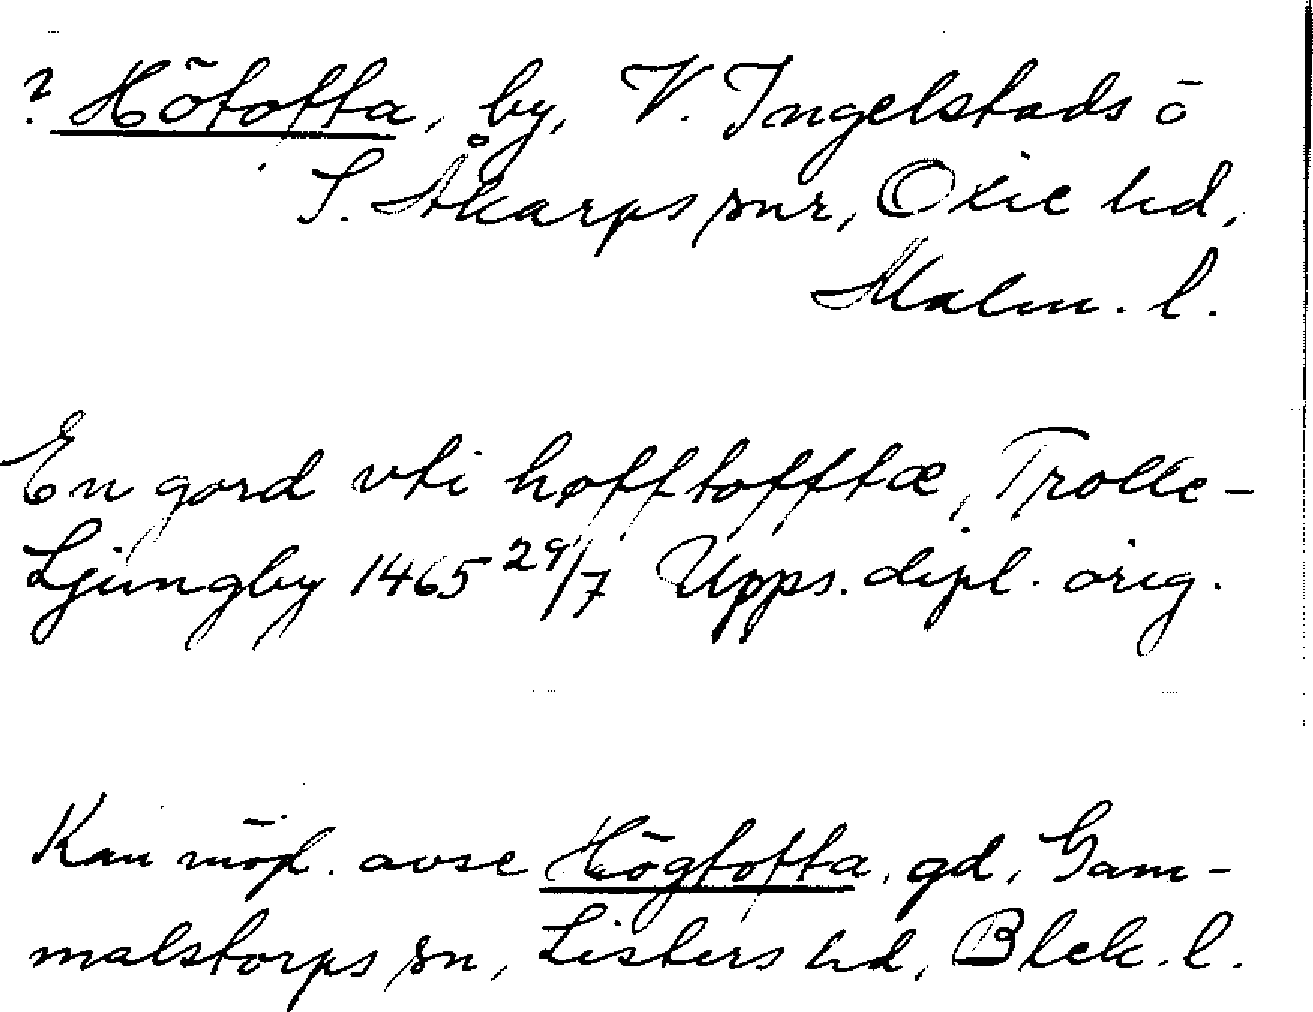 ? Hötofta, by, V. Ingelstads o
S. Åkarps snr, Oxie hd,
Malm. l.
En gord vti høfftofftæ, Trolle-
Ljungby 1465 29/7 Upps. dipl. orig.
Kan möjl. avse Högtofta, gd, Gam-
malstorps sn, Listers hd, Blek. l.